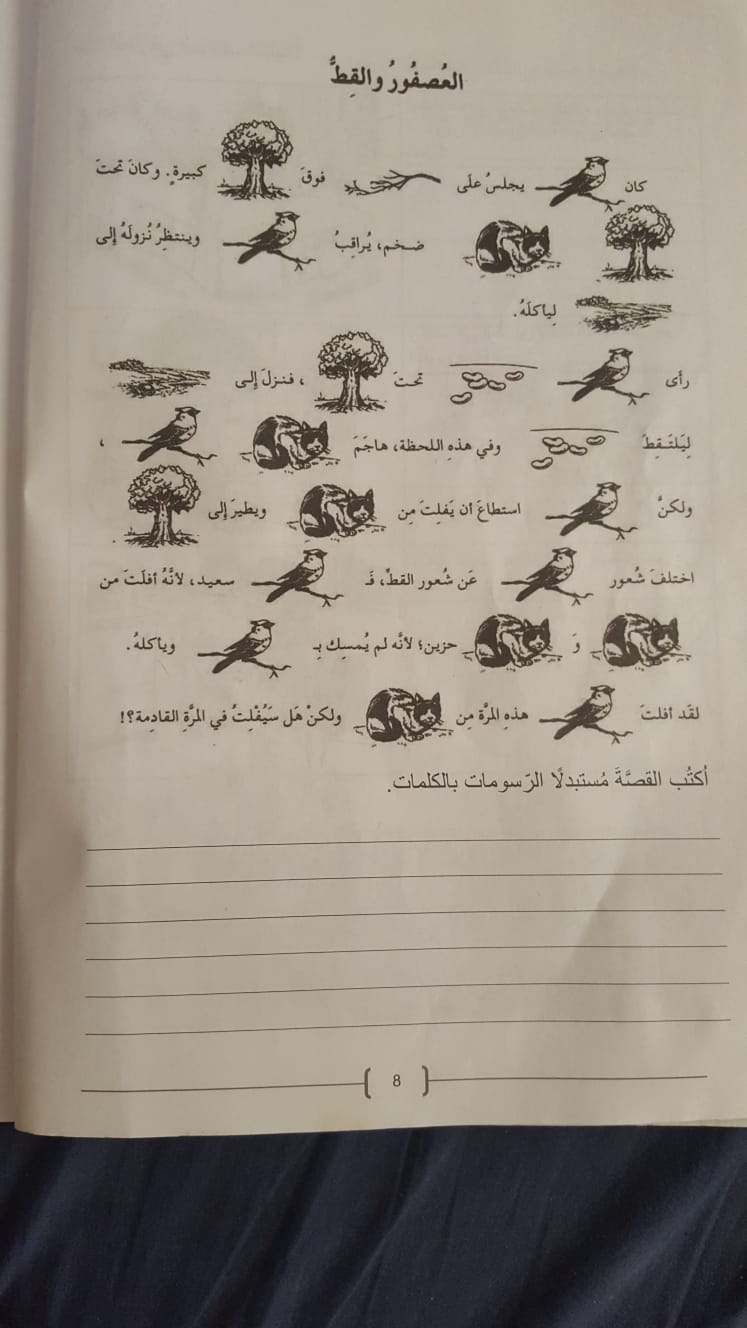 العُصفُورُ والقِطُّ
كان يجلسُ علَى فوقَ كبيرةٍ. وكانَ تحتَ
ضخم، يُراقِبُ وينتظِرُ نُزولَهُ إلى
لِياكلَهُ.
رأى تحتَ ، فنزلَ إلى
لِيَلتَـقِطَ وفي هذهِ اللحظة، هاجَمَ ،
ولكنَّ استطاعَ أن يَفلِتَ مِن ويطيرَ إلى .
اختلفَ شُعور عَن شُعور القطِّ، فَـ سعيد، لأنَّهُ أفلَتَ من
وَ حزين؛ لأنَّه لم يُمسِك بِـ وياكلهُ.
لقَد أفلتَ هذهِ المرَّة مِن ولكنْ هَل سَيُفْلِتُ في المرَّةِ القادِمة؟!
اُكتُب القصَّةَ مُستبدلًا الرّسومات بالكلمات.
8